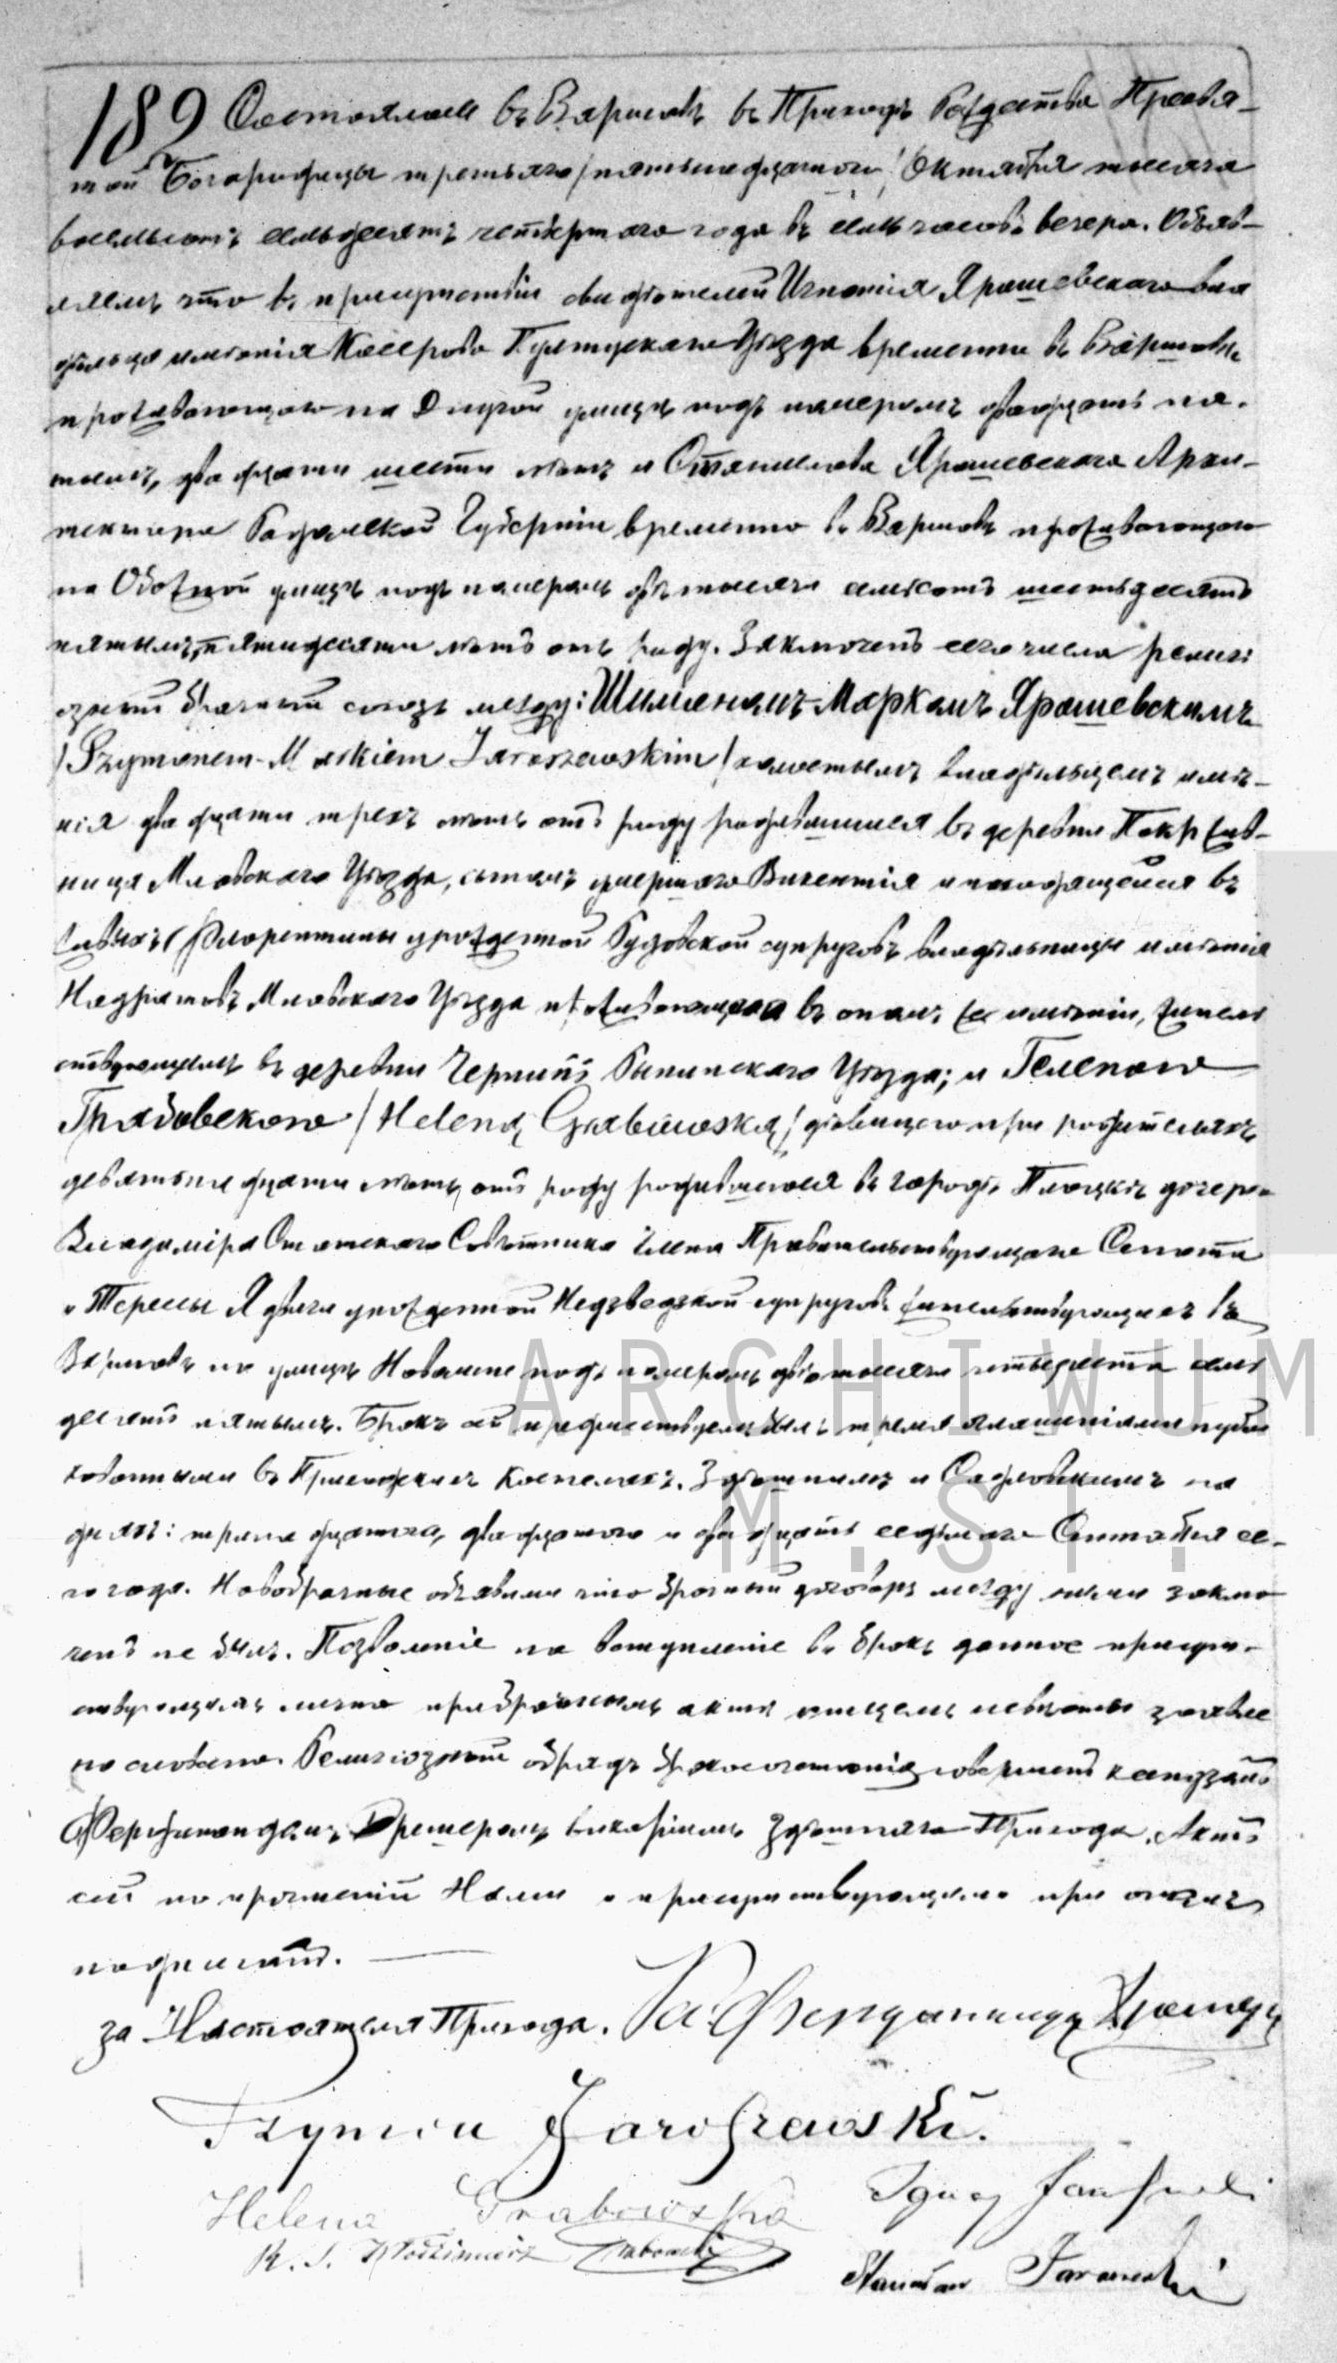 182 Состоялось въ Варшавѣ въ Приходѣ Рождества Пресвя-
той Богородицы третьяго /пятнадцатаго/ Октября тысяча
восемьсотъ семьдесятъ четвертаго года въ семь часовъ вечера. Объяв-
ляемъ что въ присутствіи свидѣтелей Игнатія Ярашевскаго вла
дѣльца имѣнія Пултускаго Уѣзда временно въ Варшавѣ
проживающаго на Длугой улицѣ подъ номеромъ двадцать пя-
тымъ, двадцати шести лѣтъ и Станислава Ярашевскаго Архи-
тектора Радомской Губерніи временно въ Варшавѣ проживающаго
на Обозной улицѣ подъ номеромъ двѣ тысячи семьсотъ шестьдесятъ
пятымъ, пятидесяти лѣтъ отъ роду. Заключенъ сего числа религі
озный брачный союзъ между: Шимономъ-Маркомъ Ярашевскимъ
/Szymonem-Markiem Jaroszewskim/ холостымъ владѣльцемъ имѣ-
нія двадцати трехъ лѣтъ отъ роду родившимся въ деревни Покржив-
ница Млавскаго Уѣзда, сыномъ умершаго Викентія и находящейся въ
живыхъ Флорентины урожденной супруговъ владѣльницы имѣнія
Млавскаго Уѣзда проживающей въ ономъ же имѣніи, житель
ствующимъ въ деревни Рыпинскаго Уѣзда; и Геленою
Грабовскою /Heleną Grabowską/ дѣвицею при родителяхъ
девятнадцати лѣтъ отъ роду родившеюся въ городѣ Плоцкѣ дочерью
Владиміра Статскаго Совѣтника Члена Правительствующаго Сената
и Терессы Ядвиги урожденной Недзведзкой супруговъ жительствующихъ въ
Варшавѣ по улицѣ подъ номеромъ двѣ тысячи четыреста семь
десятъ пятымъ. Бракъ сей предшествуемъ былъ тремя оглашеніями публи
кованными въ Приходскихъ Костелахъ: Здѣшнимъ и на
дняхъ: тринадцатаго, двадцатаго и двадцать седьмаго Сентября се-
го года. Новобрачные объявили что брачный договоръ между ними заклю
ченъ не былъ. Позволеніе на вступленіе въ бракъ данное присут-
ствующимъ лично при брачномъ актѣ отцемъ невѣсты заявле
но словесно. Религіозный обрядъ бракосочетанія совершенъ ксендзомъ
Фердинандомъ викаріемъ здѣшняго Прихода. Актъ
сей по прочтеніи Нами и присутствующими при ономъ
подписанъ.
за Настоятеля Прихода. Кс. Фердинандъ
Szymon Jaroszewski.
Helena Grabowska Ignacy Jaroszewski
R. S. Włodzimierz Grabowski Stanisław Jaroszewski
ARCHIWUM
M. ST.